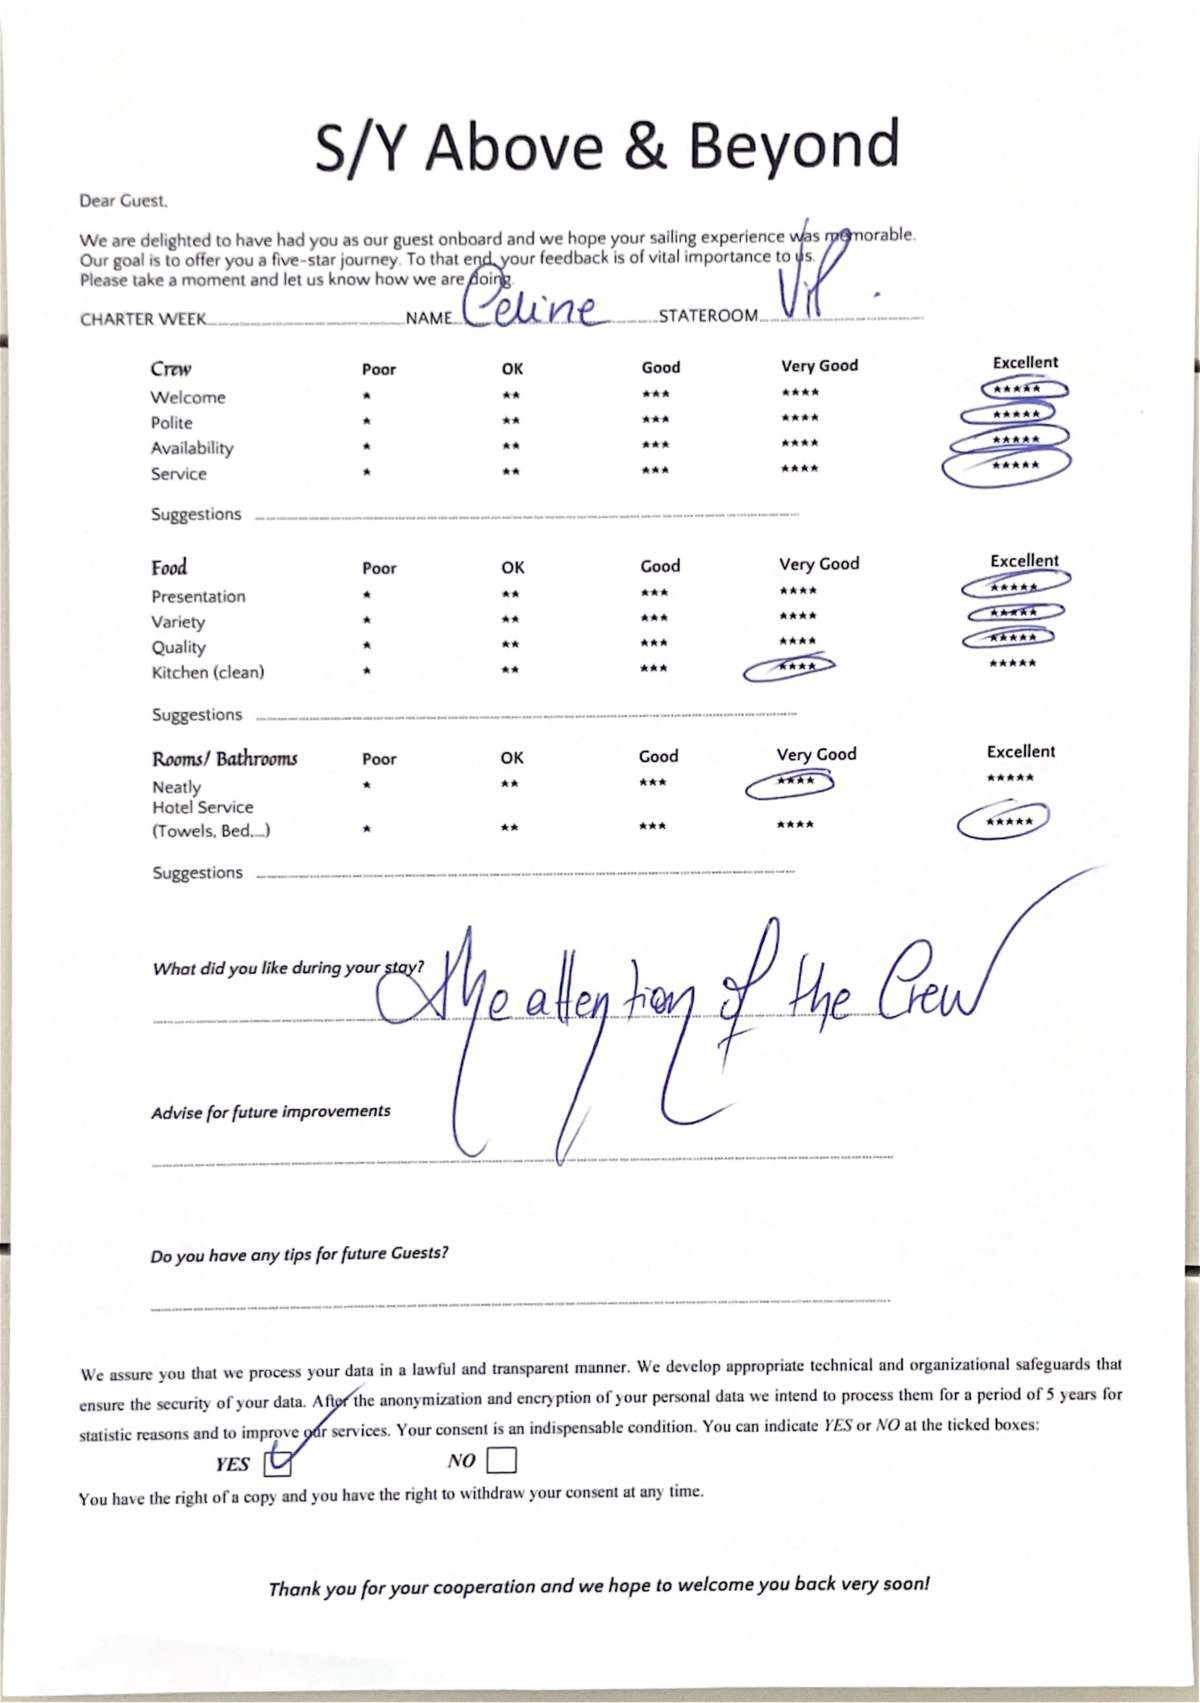 S/Y Above & Beyond
Dear Guest,
We are delighted to have had you as our guest onboard and we hope your sailing experience was memorable.
Our goal is to offer you a five-star journey. To that end, your feedback is of vital importance to us.
Please take a moment and let us know how we are doing.
CHARTER WEEK NAME Celine STATEROOM
Crew Poor OK Good Very Good Excellent
Welcome * ** *** **** *****
Polite * ** *** **** *****
Availability * ** *** **** *****
Service * ** *** **** *****
Suggestions
Food Poor OK Good Very Good Excellent
Presentation * ** *** **** *****
Variety * ** *** **** *****
Quality * ** *** **** *****
Kitchen (clean) * ** *** **** *****
Suggestions
Rooms/ Bathrooms Poor OK Good Very Good Excellent
Neatly * ** *** **** *****
Hotel Service
(Towels, Bed,...) * ** *** **** *****
Suggestions
What did you like during your stay? The attention of the Crew
Advise for future improvements
Do you have any tips for future Guests?
We assure you that we process your data in a lawful and transparent manner. We develop appropriate technical and organizational safeguards that
ensure the security of your data. After the anonymization and encryption of your personal data we intend to process them for a period of 5 years for
statistic reasons and to improve our services. Your consent is an indispensable condition. You can indicate YES or NO at the ticked boxes:
YES NO
You have the right of a copy and you have the right to withdraw your consent at any time.
Thank you for your cooperation and we hope to welcome you back very soon!